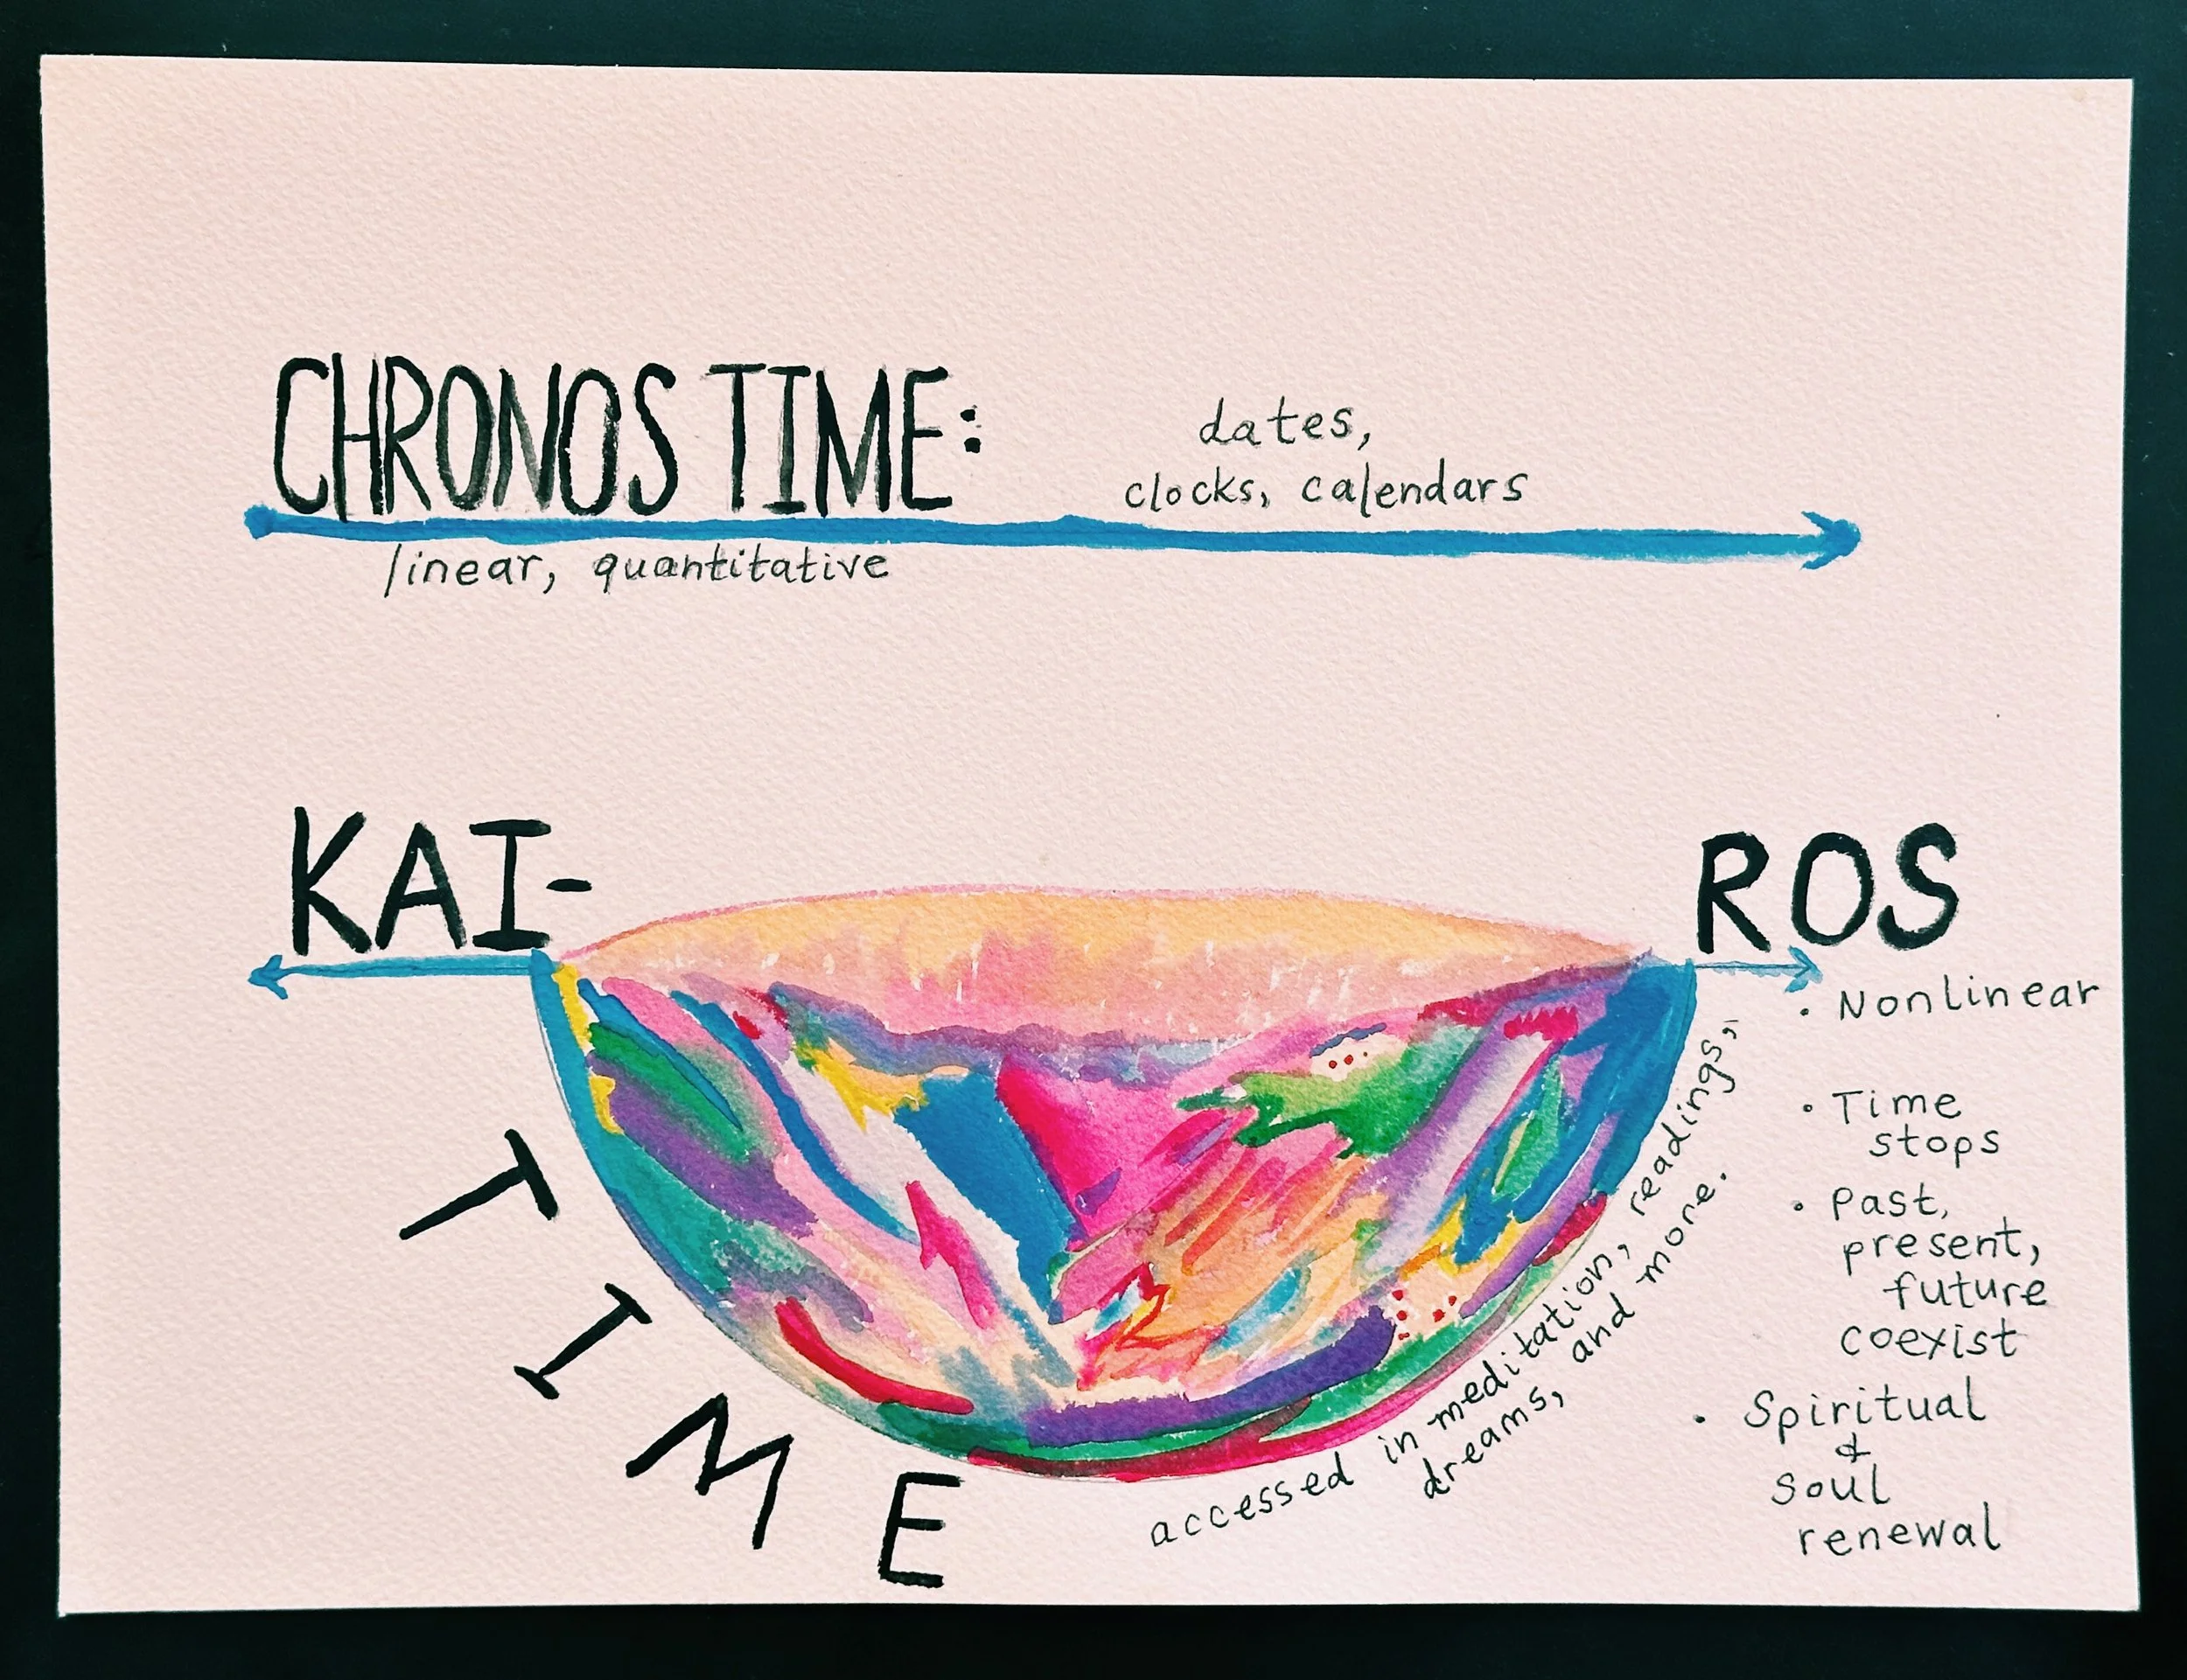 CHRONOS TIME:
dates,
clocks, calendars
linear, quantitative
KAI-
ROS
TIME
accessed in meditation, readings,
dreams, and more.
• Nonlinear
• Time
stops
• Past,
present,
future
coexist
• Spiritual
&
soul
renewal